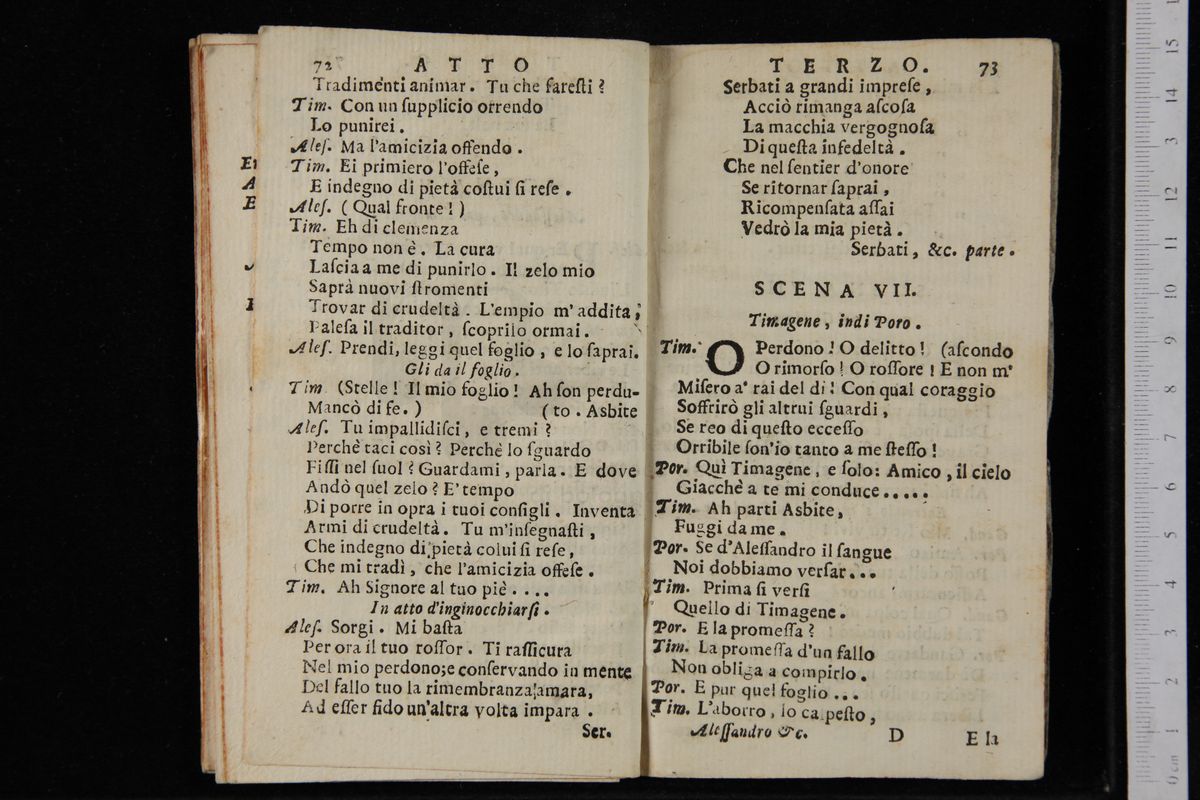 72 ATTO
Tradimenti animar. Tu che fareſti?
Tim. Con un ſupplicio orrendo
Lo punirei.
Aleſ. Ma l'amicizia offendo.
Tim. Ei primiero l'offeſe,
E indegno di pietà coſtui ſi reſe.
Aleſ. (Qual fronte!)
Tim. Eh di clemenza
Tempo non è. La cura
Laſcia a me di punirlo. Il zelo mio
Saprà nuovi ſtromenti
Trovar di crudeltà. L'empio m'addita;
Paleſa il traditor, ſcoprilo ormai.
Aleſ. Prendi, leggi quel foglio, e lo ſaprai.
Gli da il foglio.
Tim (Stelle! Il mio foglio! Ah ſon perdu-
Mancò di fe.) (to. Asbite
Aleſ. Tu impallidiſci, e tremi?
Perchè taci così? Perchè lo ſguardo
Fiſſi nel ſuol? Guardami, parla. E dove
Andò quel zelo? E' tempo
Di porre in opra i tuoi conſigli. Inventa
Armi di crudeltà. Tu m'inſegnaſti,
Che indegno di pietà colui ſi reſe,
Che mi tradì, che l'amicizia offeſe.
Tim. Ah Signore al tuo piè....
In atto d'inginocchiarſi.
Aleſ. Sorgi. Mi baſta
Per ora il tuo roſſor. Ti raſſicura
Nel mio perdono;e conſervando in mente
Del fallo tuo la rimembranza amara,
Ad eſſer fido un'altra volta impara.
Ser.
TERZO. 73
Serbati a grandi impreſe,
Acciò rimanga aſcoſa
La macchia vergognoſa
Di queſta infedeltà.
Che nel ſentier d'onore
Se ritornar ſaprai,
Ricompenſata aſſai
Vedrò la mia pietà.
Serbati, &c. parte.
SCENA VII.
Timagene, indi Poro.
Tim. O Perdono! O delitto! (aſcondo
O rimorſo! O roſſore! E non m'
Miſero a' rai del dì! Con qual coraggio
Soffrirò gli altrui ſguardi,
Se reo di queſto ecceſſo
Orribile ſon'io tanto a me ſteſſo!
Por. Quì Timagene, e ſolo: Amico, il cielo
Giacchè a te mi conduce.....
Tim. Ah parti Asbite,
Fuggi da me.
Por. Se d'Aleſſandro il ſangue
Noi dobbiamo verſar...
Tim. Prima ſi verſi
Quello di Timagene.
Por. E la promeſſa?
Tim. La promeſſa d'un fallo
Non obliga a compirlo.
Por. E pur quel foglio...
Tim. L'aborro, lo calpeſto,
Aleſſandro &c. D E la